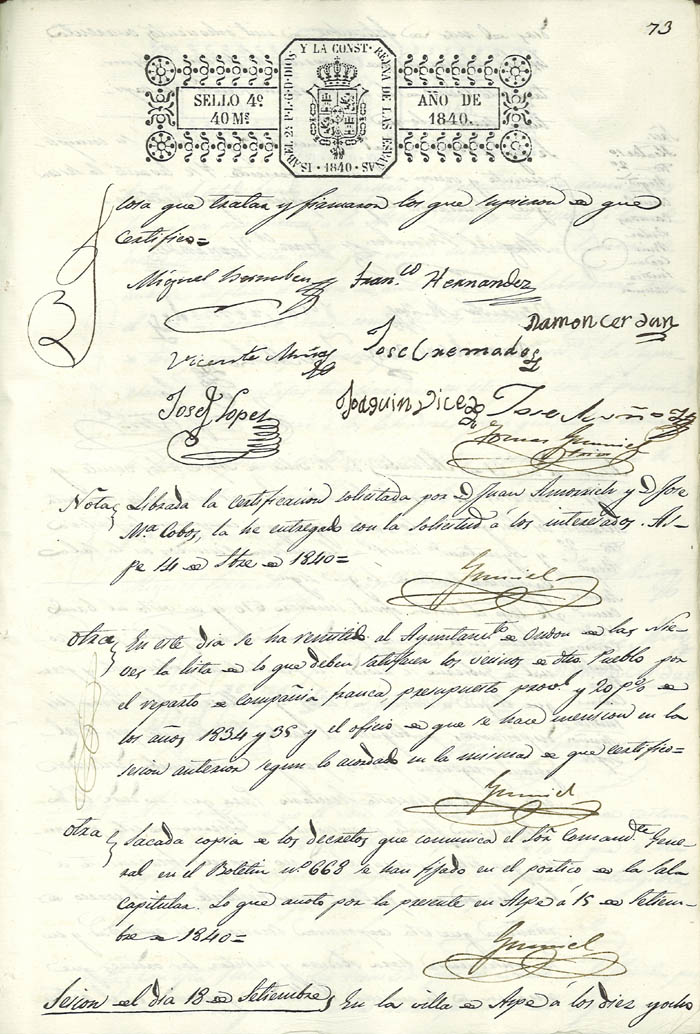 73
ISABEL 2ª P.L.G.D.DIOS Y LA CONST. REYNA DE LAS ESPAÑAS
SELLO 4º
40 Mˢ
AÑO DE
1840.
· 1840 ·
cosa que tratar y firmaron los que supieron de que
Certifico=
Miguel Franᶜᵒ Hernandez
Ramon Cerdan
Vicente Muñoz Jose Cremades
Josef Lopez Joaquin Vicedo Jose Muñoz
Tomas Gumiel
Nota Librada la certificacion solicitada por D Juan y D Jose
Mª Cobos, la he entregado con la solicitud á los interesados. As-
pe 14 de Stre de 1840=
Gumiel
Otra En este dia se ha remitido al Ayuntamᵗᵒ de Ondon de las Nie-
ves la lista de lo que deben satisfacer los vecinos de dho Pueblo por
el reparto de compañia franca, presupuesto provˡ y 20 pº% de
los años 1834 y 35 y el oficio de que se hace mencion en la
sesion anterior segun lo acordado en la misma de que certifico=
Gumiel
Otra Sacada copia de los decretos que comunica el Sôr Comandᵗᵉ Gene-
ral en el Boletin nº 668 se han fijado en el portico de la Sala
Capitular. Lo que anoto por la presente en Aspe á 15 de Setiem-
bre de 1840=
Gumiel
Sesion del dia 18 de Setiembre En la villa de Aspe á los diez y ocho